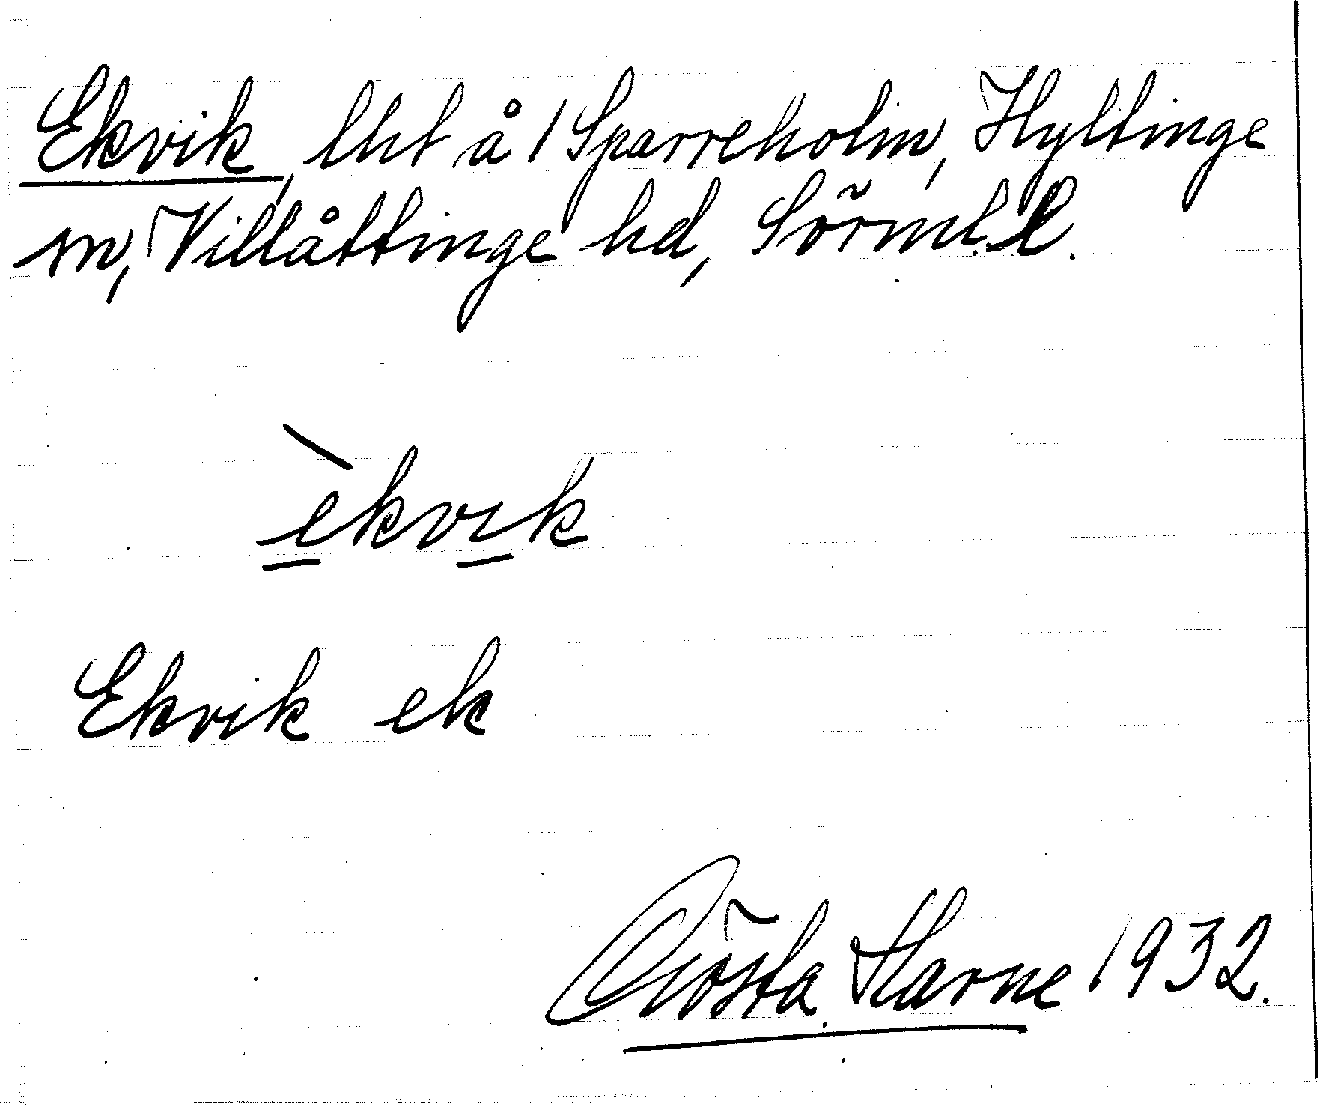 Ekvik, lht å 1 Sparreholm, Hyltinge
sn, Villåttinge hd, Sörml. l.
èkvik
Ekvik ek
Gösta Harne 1932.